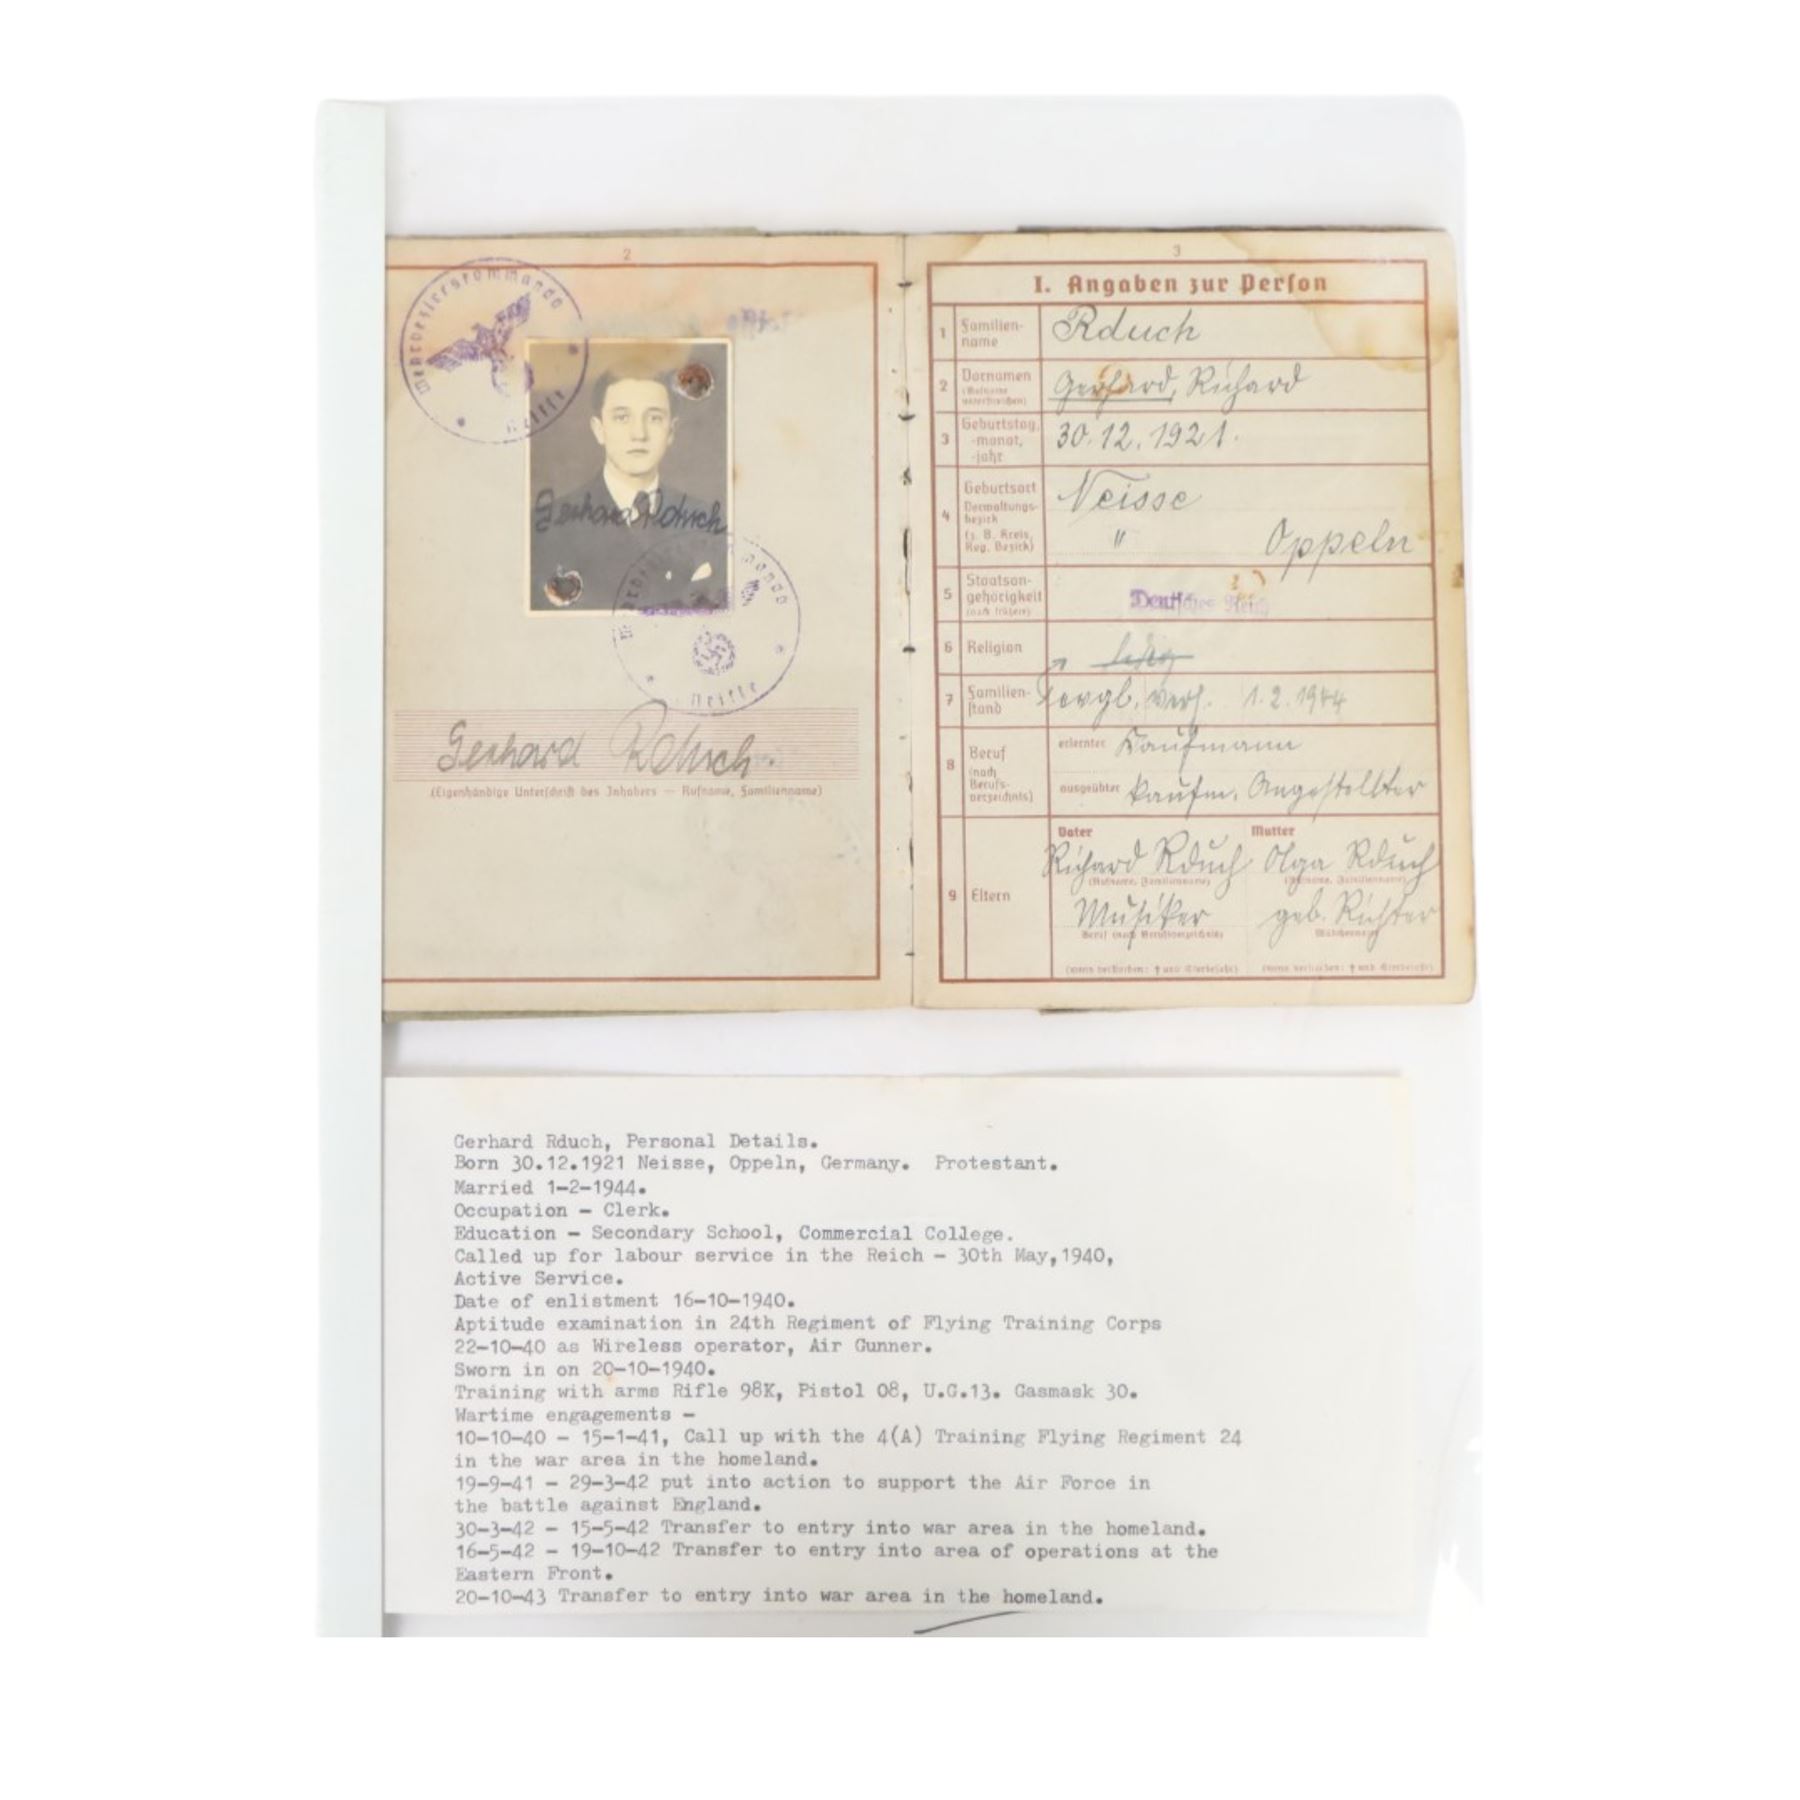 2
Wehrbezirkskommando
Neisse
Gerhard Rduch
Neisse
Gerhard Rduch.
(Eigenhändige Unterschrift des Inhabers — Rufname, Familienname)
3
I. Angaben zur Person
1 Familien-
name
Rduch
2 Vornamen
(Rufname
unterstreichen)
Gerhard, Richard
3 Geburtstag,
-monat,
-jahr
30.12.1921.
4 Geburtsort
Verwaltungs-
bezirk
(z. B. Kreis,
Reg. Bezirk)
Neisse
" Oppeln
5 Staatsan-
gehörigkeit
(auch frühere)
Deutsches Reich
6 Religion
ledig
7 Familien-
stand
verh. 1.2.1944
8 Beruf
(nach
Berufs-
verzeichnis)
erlernter Kaufmann
ausgeübter kaufm. Angestellter
9 Eltern
Vater Mutter
Richard Rduch Olga Rduch
(Rufname, Familienname) (Rufname, Familienname)
Musiker geb. Richter
Beruf (nach Berufsverzeichnis) Mädchenname
(wenn verstorben: † und Sterbejahr) (wenn verstorben: † und Sterbejahr)
Gerhard Rduch, Personal Details.
Born 30.12.1921 Neisse, Oppeln, Germany. Protestant.
Married 1-2-1944.
Occupation - Clerk.
Education - Secondary School, Commercial College.
Called up for labour service in the Reich - 30th May,1940,
Active Service.
Date of enlistment 16-10-1940.
Aptitude examination in 24th Regiment of Flying Training Corps
22-10-40 as Wireless operator, Air Gunner.
Sworn in on 20-10-1940.
Training with arms Rifle 98K, Pistol 08, U.G.13. Gasmask 30.
Wartime engagements -
10-10-40 - 15-1-41, Call up with the 4(A) Training Flying Regiment 24
in the war area in the homeland.
19-9-41 - 29-3-42 put into action to support the Air Force in
the battle against England.
30-3-42 - 15-5-42 Transfer to entry into war area in the homeland.
16-5-42 - 19-10-42 Transfer to entry into area of operations at the
Eastern Front.
20-10-43 Transfer to entry into war area in the homeland.